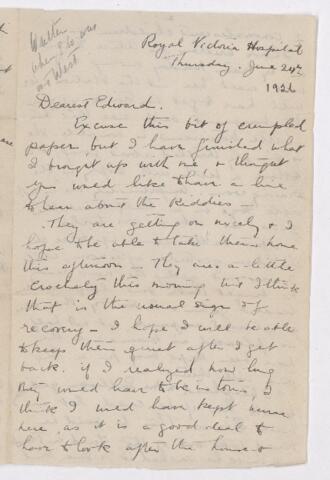 Written
when E. was
out West
Royal Victoria Hospital
Thursday. June 24th
1926
Dearest Edward.
Excuse this bit of crumpled
paper but I have finished what
I brought up with me & thought
you would like to have a line
to hear about the kiddies —
They are getting on nicely & I
hope to be able to take them home
this afternoon — They are a little
crochety this morning but I think
that is the usual sign of
recovery — I hope I will be able
to keep them quiet after I get
back. if I realized how long
they would have to be in town, I
think I would have kept nurse
here, as it is a good deal to
have to look after the house &